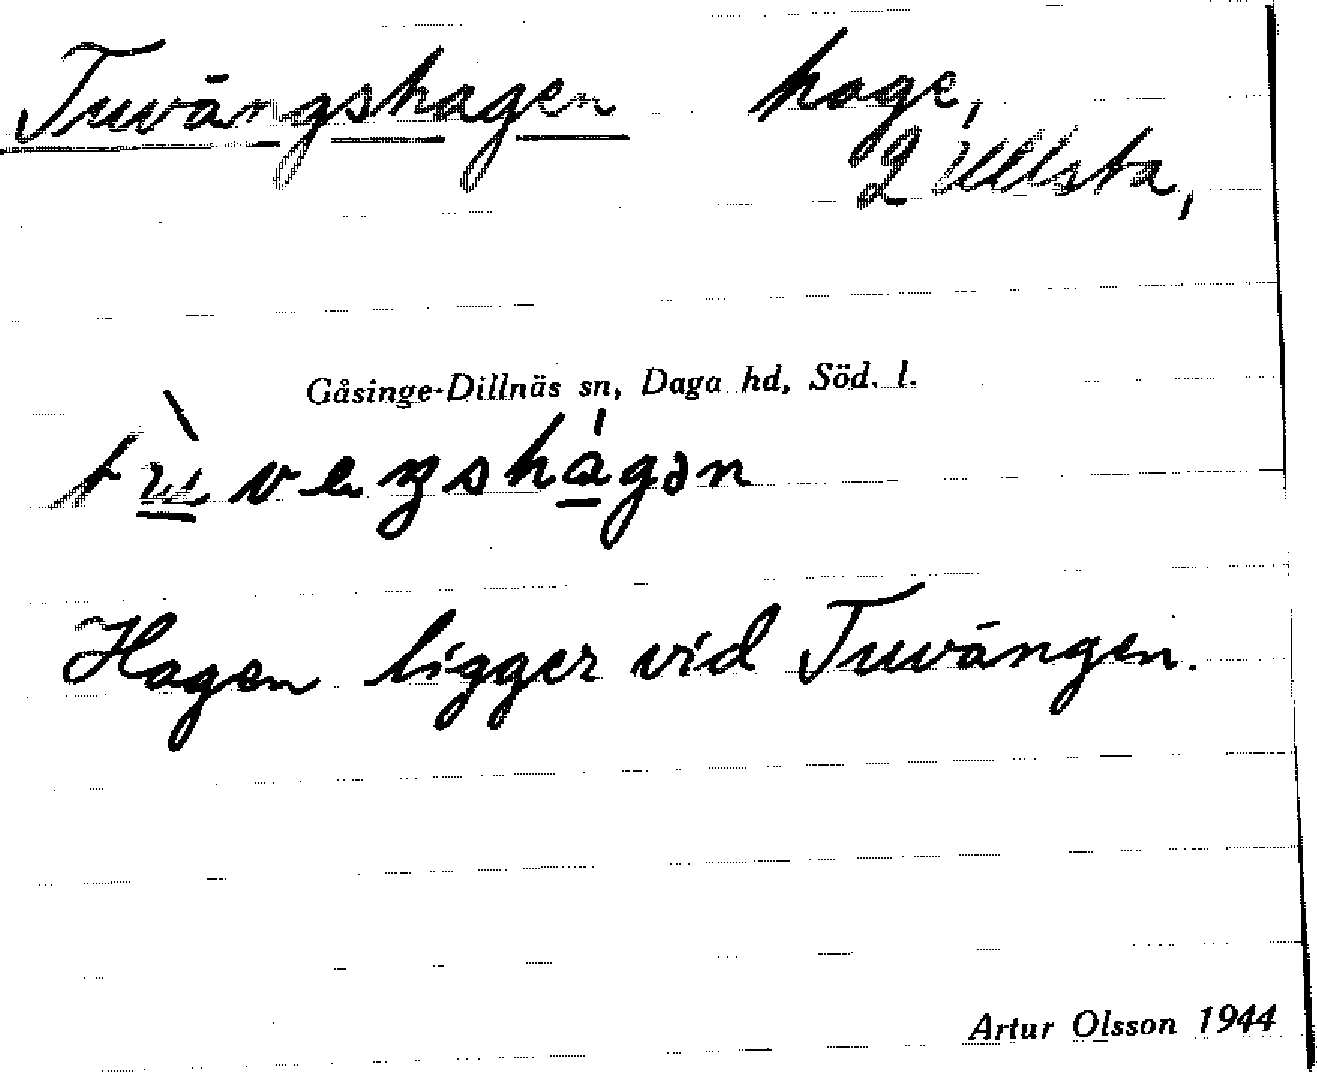 Tuvängshagen hage,
2 Ullsta,
Gåsinge-Dillnäs sn, Daga hd, Söd. l.
tù̲veŋshá̲gən
Hagen ligger vid Tuvängen.
Artur Olsson 1944